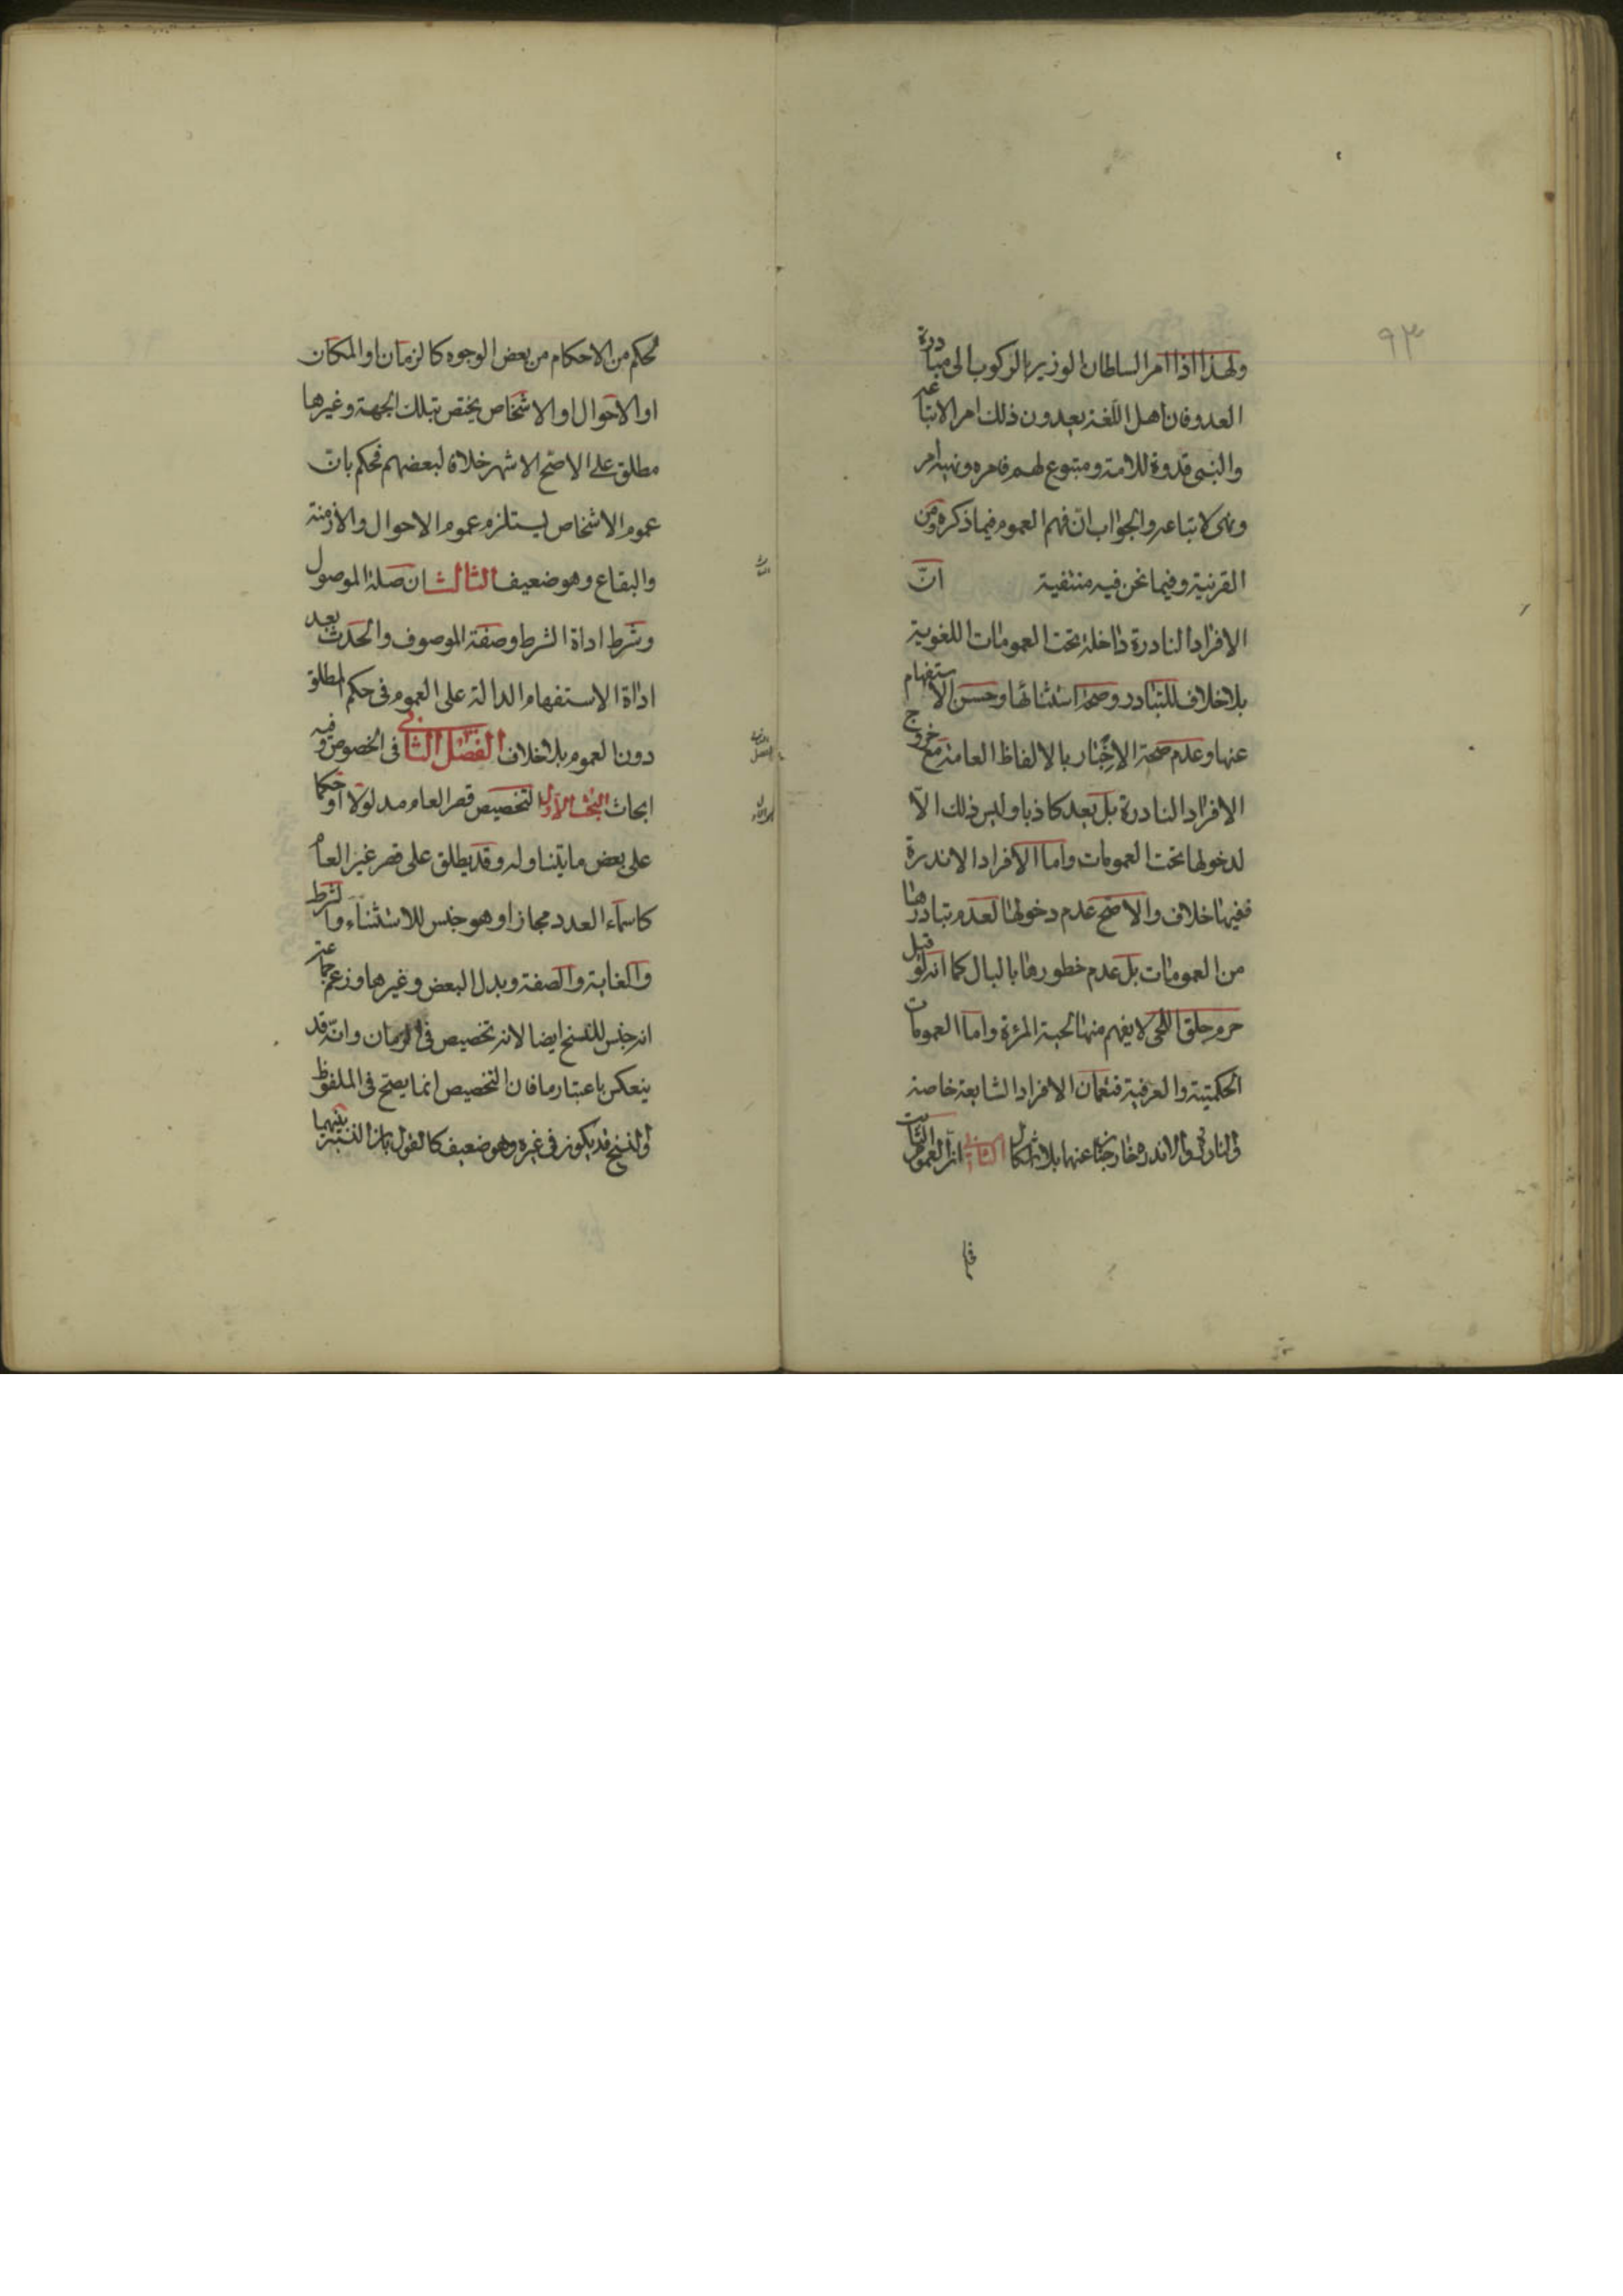 ٩٣
ولهذا اذا امر السلطان الوزير بالركوب الى مبادرة
العدو فان اهل اللغة يعدون ذلك امر الاتباعه
والنبي قدوة للامة ومتبوع لهم فامره ونهيه امر
ونهى لاتباعه والجواب ان فهم العموم فيما ذكره من
القرنية وفيما نحن فيه منتفية انّ
الافراد النادرة داخلة تحت العمومات اللغوية
بلا خلاف للتبادر وصحة استثنائها وحسن الاستفهام
عنها وعدم صحة الاخبار بالالفاظ العامة مع خروج
الافراد النادرة بل يعد كاذبا وليس ذلك الّا
لدخولها تحت العمومات واما الافراد الاندرة
ففيها خلاف والاصح عدم دخولها لعدم تبادرها
من العمومات بل عدم خطورها بالبال كما انه لو قيل
حرم حلق اللحى لا يفهم منها لحية المرئة واما العمومات
الحكمتية والعرفية فتعمان الافراد الشايعة خاصة
والنادر والاندره خارجتان عنها بلا اشكال الثاني ان العموم الثابت
لحكم من الاحكام من بعض الوجوه كالزمان او المكان
او الاحوال او الاشخاص يختص بتلك الجهة وغيرها
مطلق على الاصح الاشهر خلافا لبعضهم فحكم بان
عموم الاشخاص يستلزم عموم الاحوال والازمنة
والبقاع وهو ضعيف الثالث ان صلة الموصول
وشرط اداة الشرط وصفة الموصوف والحدث بعد
اداة الاستفهام الدالة على العموم في حكم المطلق
دون العموم بلا خلاف الفصل الثاني في الخصوص وفيه
ابحاث البحث الاول التخصيص قصر العام مدلولا او حكما
على بعض ما يتناوله وقد يطلق على قصر غير العام
كاسماء العدد مجازا وهو جنس للاستثناء والشرط
والغاية والصفة وبدل البعض وغيرها وزعم جماعة
انه جنس للنسخ ايضا لانه تخصيص في الازمان وانه قد
ينعكس باعتبار ما فان التخصيص انما يصح في الملفوظ
والنسخ قد يكون في غيره وهو ضعيف كالقول بان النسبة بينهما